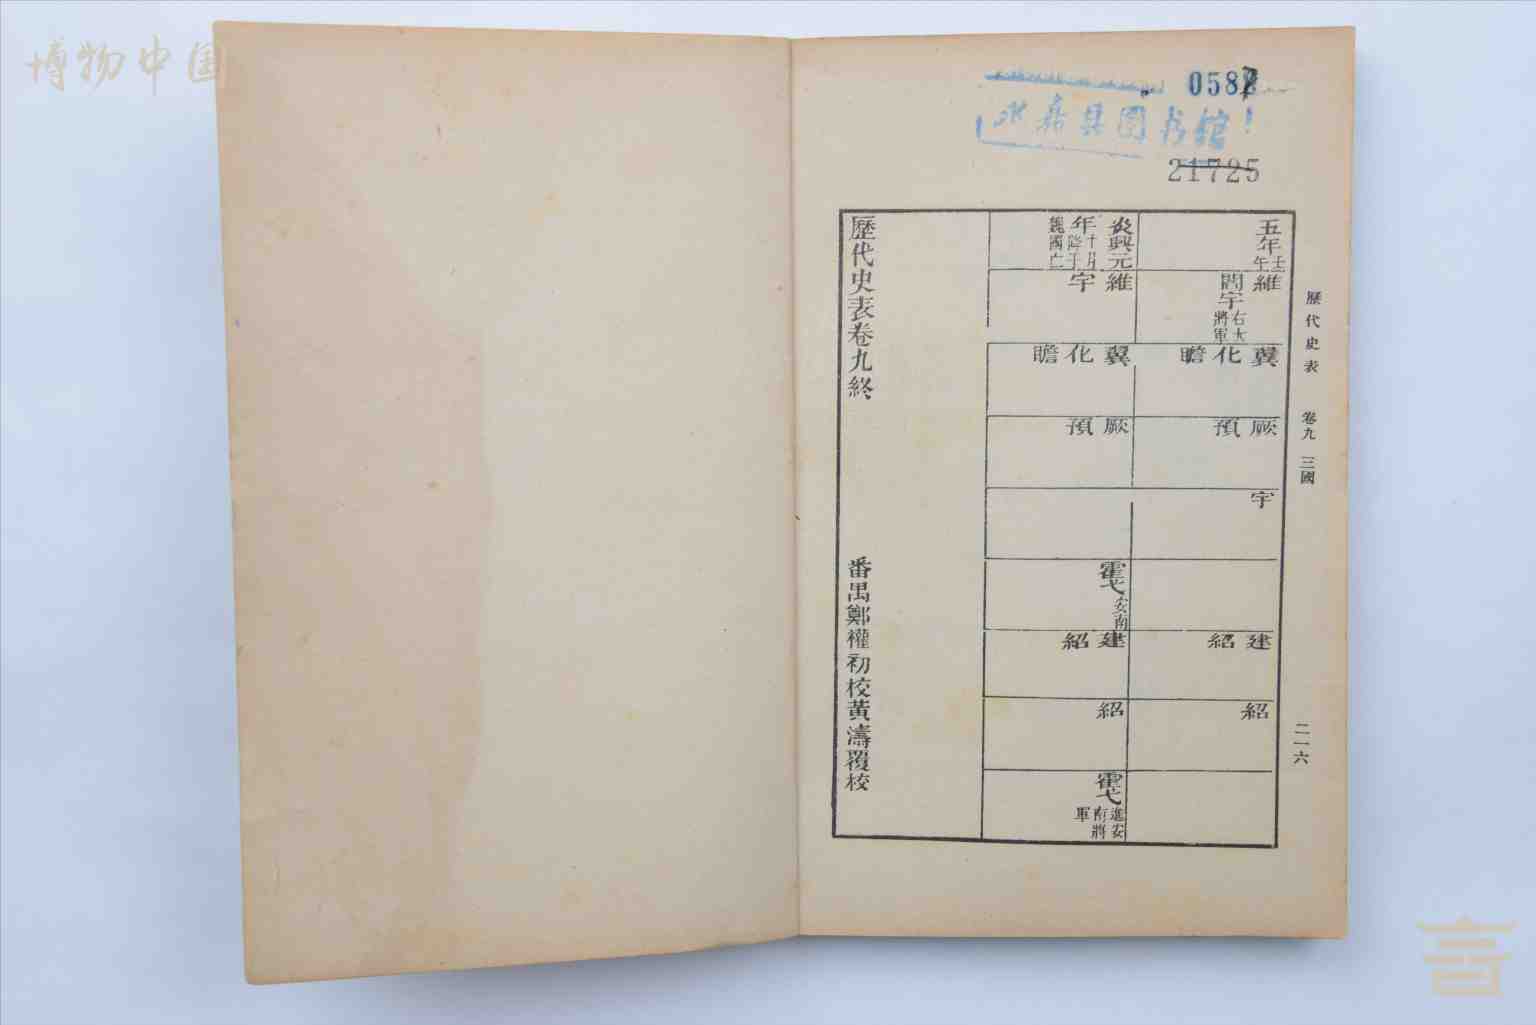 博物中国
0587
永嘉县图书馆
21725
歷代史表 卷九 三國 二一六
五年 壬午
維 閻宇 右大將軍
翼 化 瞻
厥 預
宇
建 紹
紹
炎興元年 十一月降于魏國亡
維 宇
翼 化 瞻
厥 預
霍弋 安南
建 紹
紹
霍弋 進安南將軍
歷代史表卷九終
番禺鄭權初校黃濤覆校